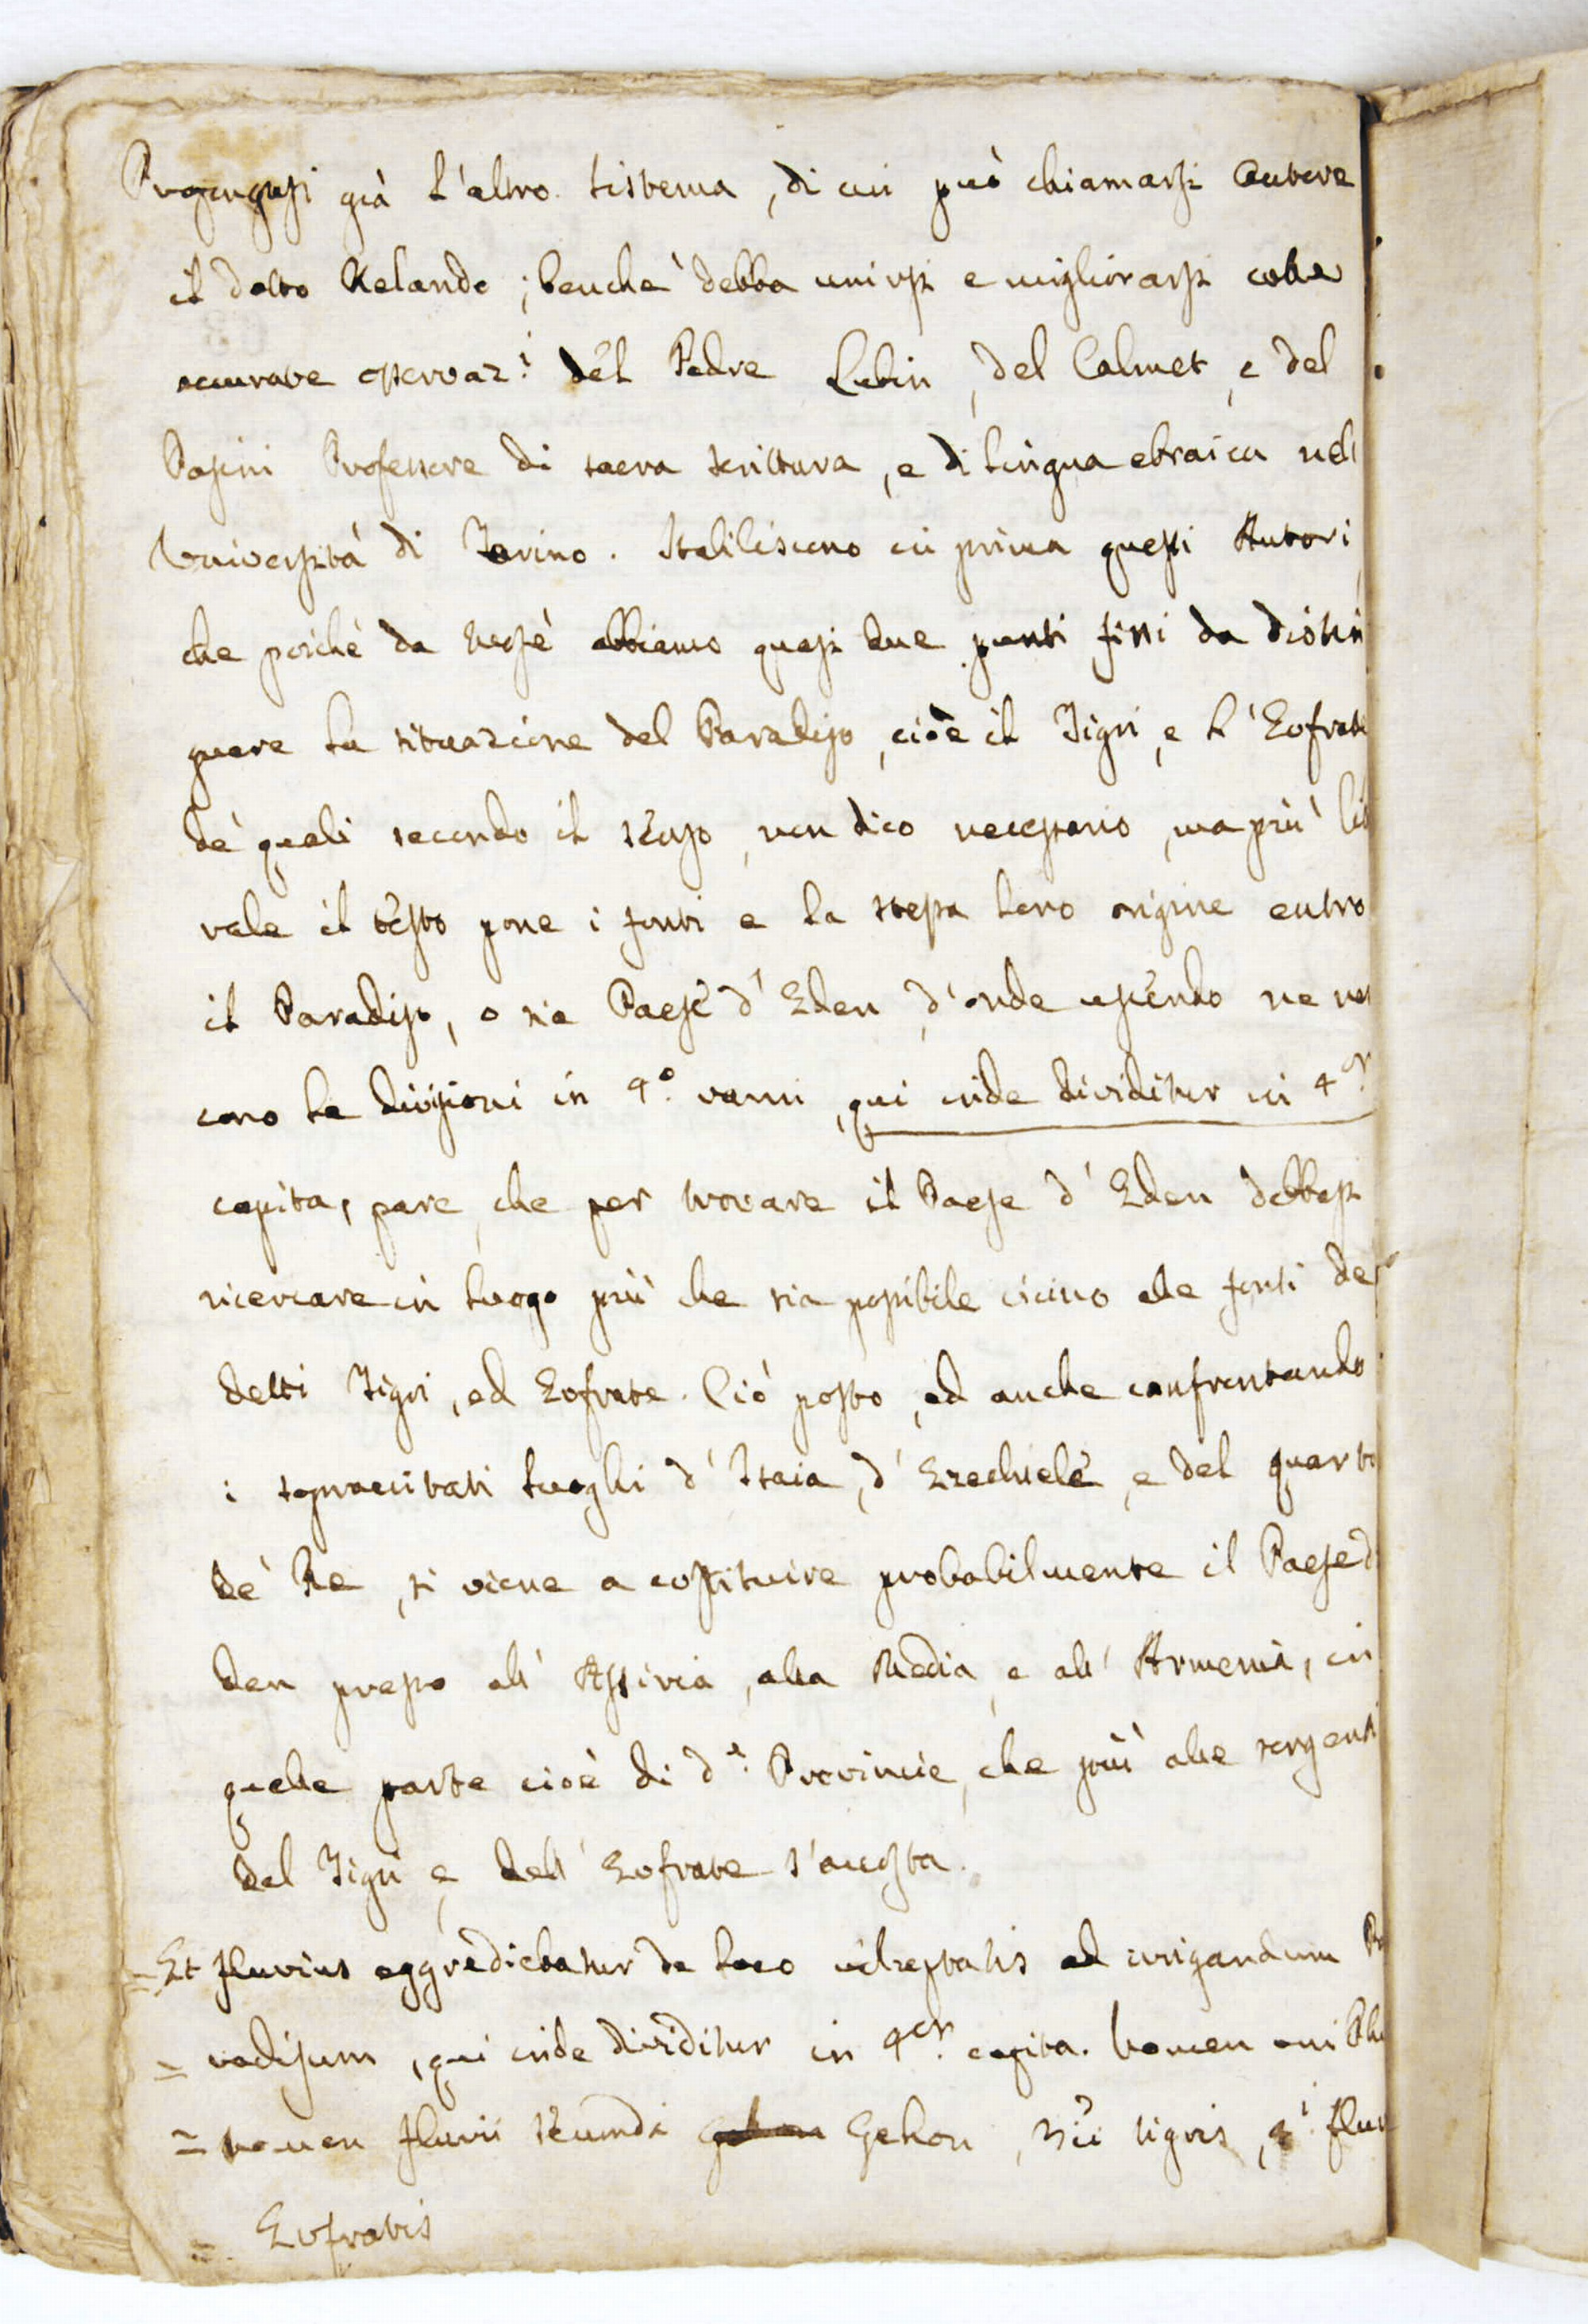 Propongasi già l'altro sistema, di cui può chiamarsi Autore
il dotto Relando; benche debba unirsi e migliorarsi colle
accurate osservaz.i del Padre Lubin, del Calmet, e del
Pasini Professore di sacra scrittura, e di lingua ebraica nell
Università di Torino. Stabiliscono in prima questi Autori
che poichè da Mosè abbiamo quasi due punti fissi da distin
guere la situazione del Paradiso, cioè il Tigri, e l'Eofrate
de' quali secondo il senso, non dico necessario, ma più lit
rale il testo pone i fonti e la stessa loro origine entro
il Paradiso, o sia Paese d'Eden, d'onde uscendo ne
cono le divisioni in 4.o rami, qui inde dividitur in 4.or
capita, pare, che per trovare il Paese d'Eden debbasi
ricercare in luogo più che sia possibile vicino alle fonti de
detti Tigri, ed Eofrate. Ciò posto, ed anche confrontando
i sopraccitati luoghi d'Isaia, d'Ezechiele, e del quarto
de' Re, si viene a costituire probabilmente il Paese d
den presso all'Assiria, alla Media, e all'Armenia, in
quelle parte cioè di d.e Provincie, che più alle sorgenti
del Tigri e, dell'Eofrate s'accosta.
= Et fluvius aggrediebatur de loco voluptatis ad irrigandum Pa
= radisum, qui inde dividitur in 4.or capita. Nomen uni Phi
= nomen fluvii secundi Gehon Gehon, 3.ii tigris, 4.i fluv
= Eufratis